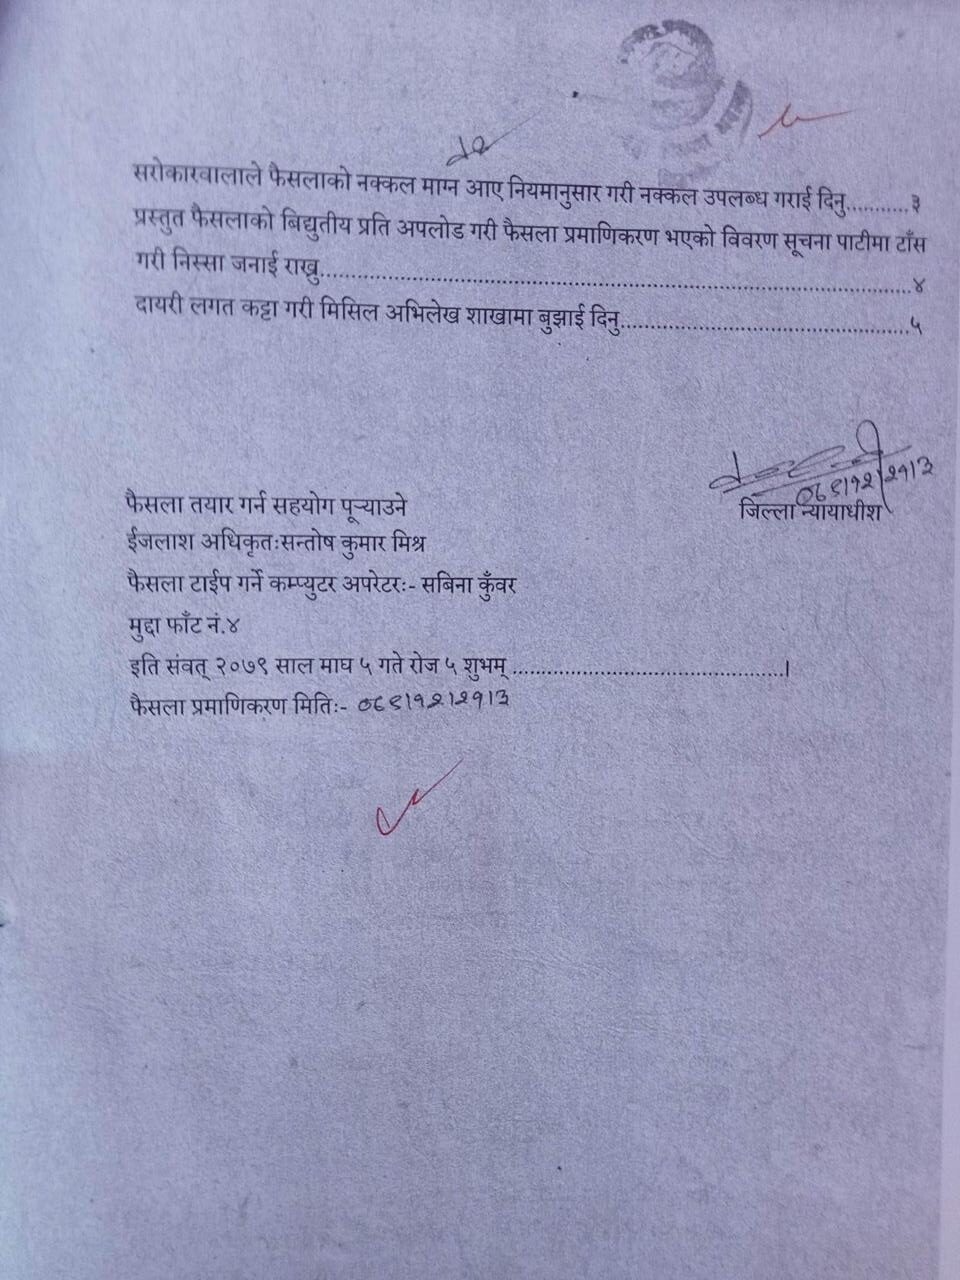 सरोकारवालाले फैसलाको नक्कल माग्न आए नियमानुसार गरी नक्कल उपलब्ध गराई दिनु...........३
प्रस्तुत फैसलाको बिद्युतीय प्रति अपलोड गरी फैसला प्रमाणिकरण भएको विवरण सूचना पाटीमा टाँस
गरी निस्सा जनाई राख्नु....................................................................................................४
दायरी लगत कट्टा गरी मिसिल अभिलेख शाखामा बुझाई दिनु.................................................५
०७९।१२।२१।३
जिल्ला न्यायाधीश
फैसला तयार गर्न सहयोग पूर्‍याउने
ईजलाश अधिकृतःसन्तोष कुमार मिश्र
फैसला टाईप गर्ने कम्प्युटर अपरेटरः- सबिना कुँवर
मुद्दा फाँट नं.४
इति संवत् २०७९ साल माघ ५ गते रोज ५ शुभम् ..............................................।
फैसला प्रमाणिकरण मितिः- ०७९।१२।२१।३